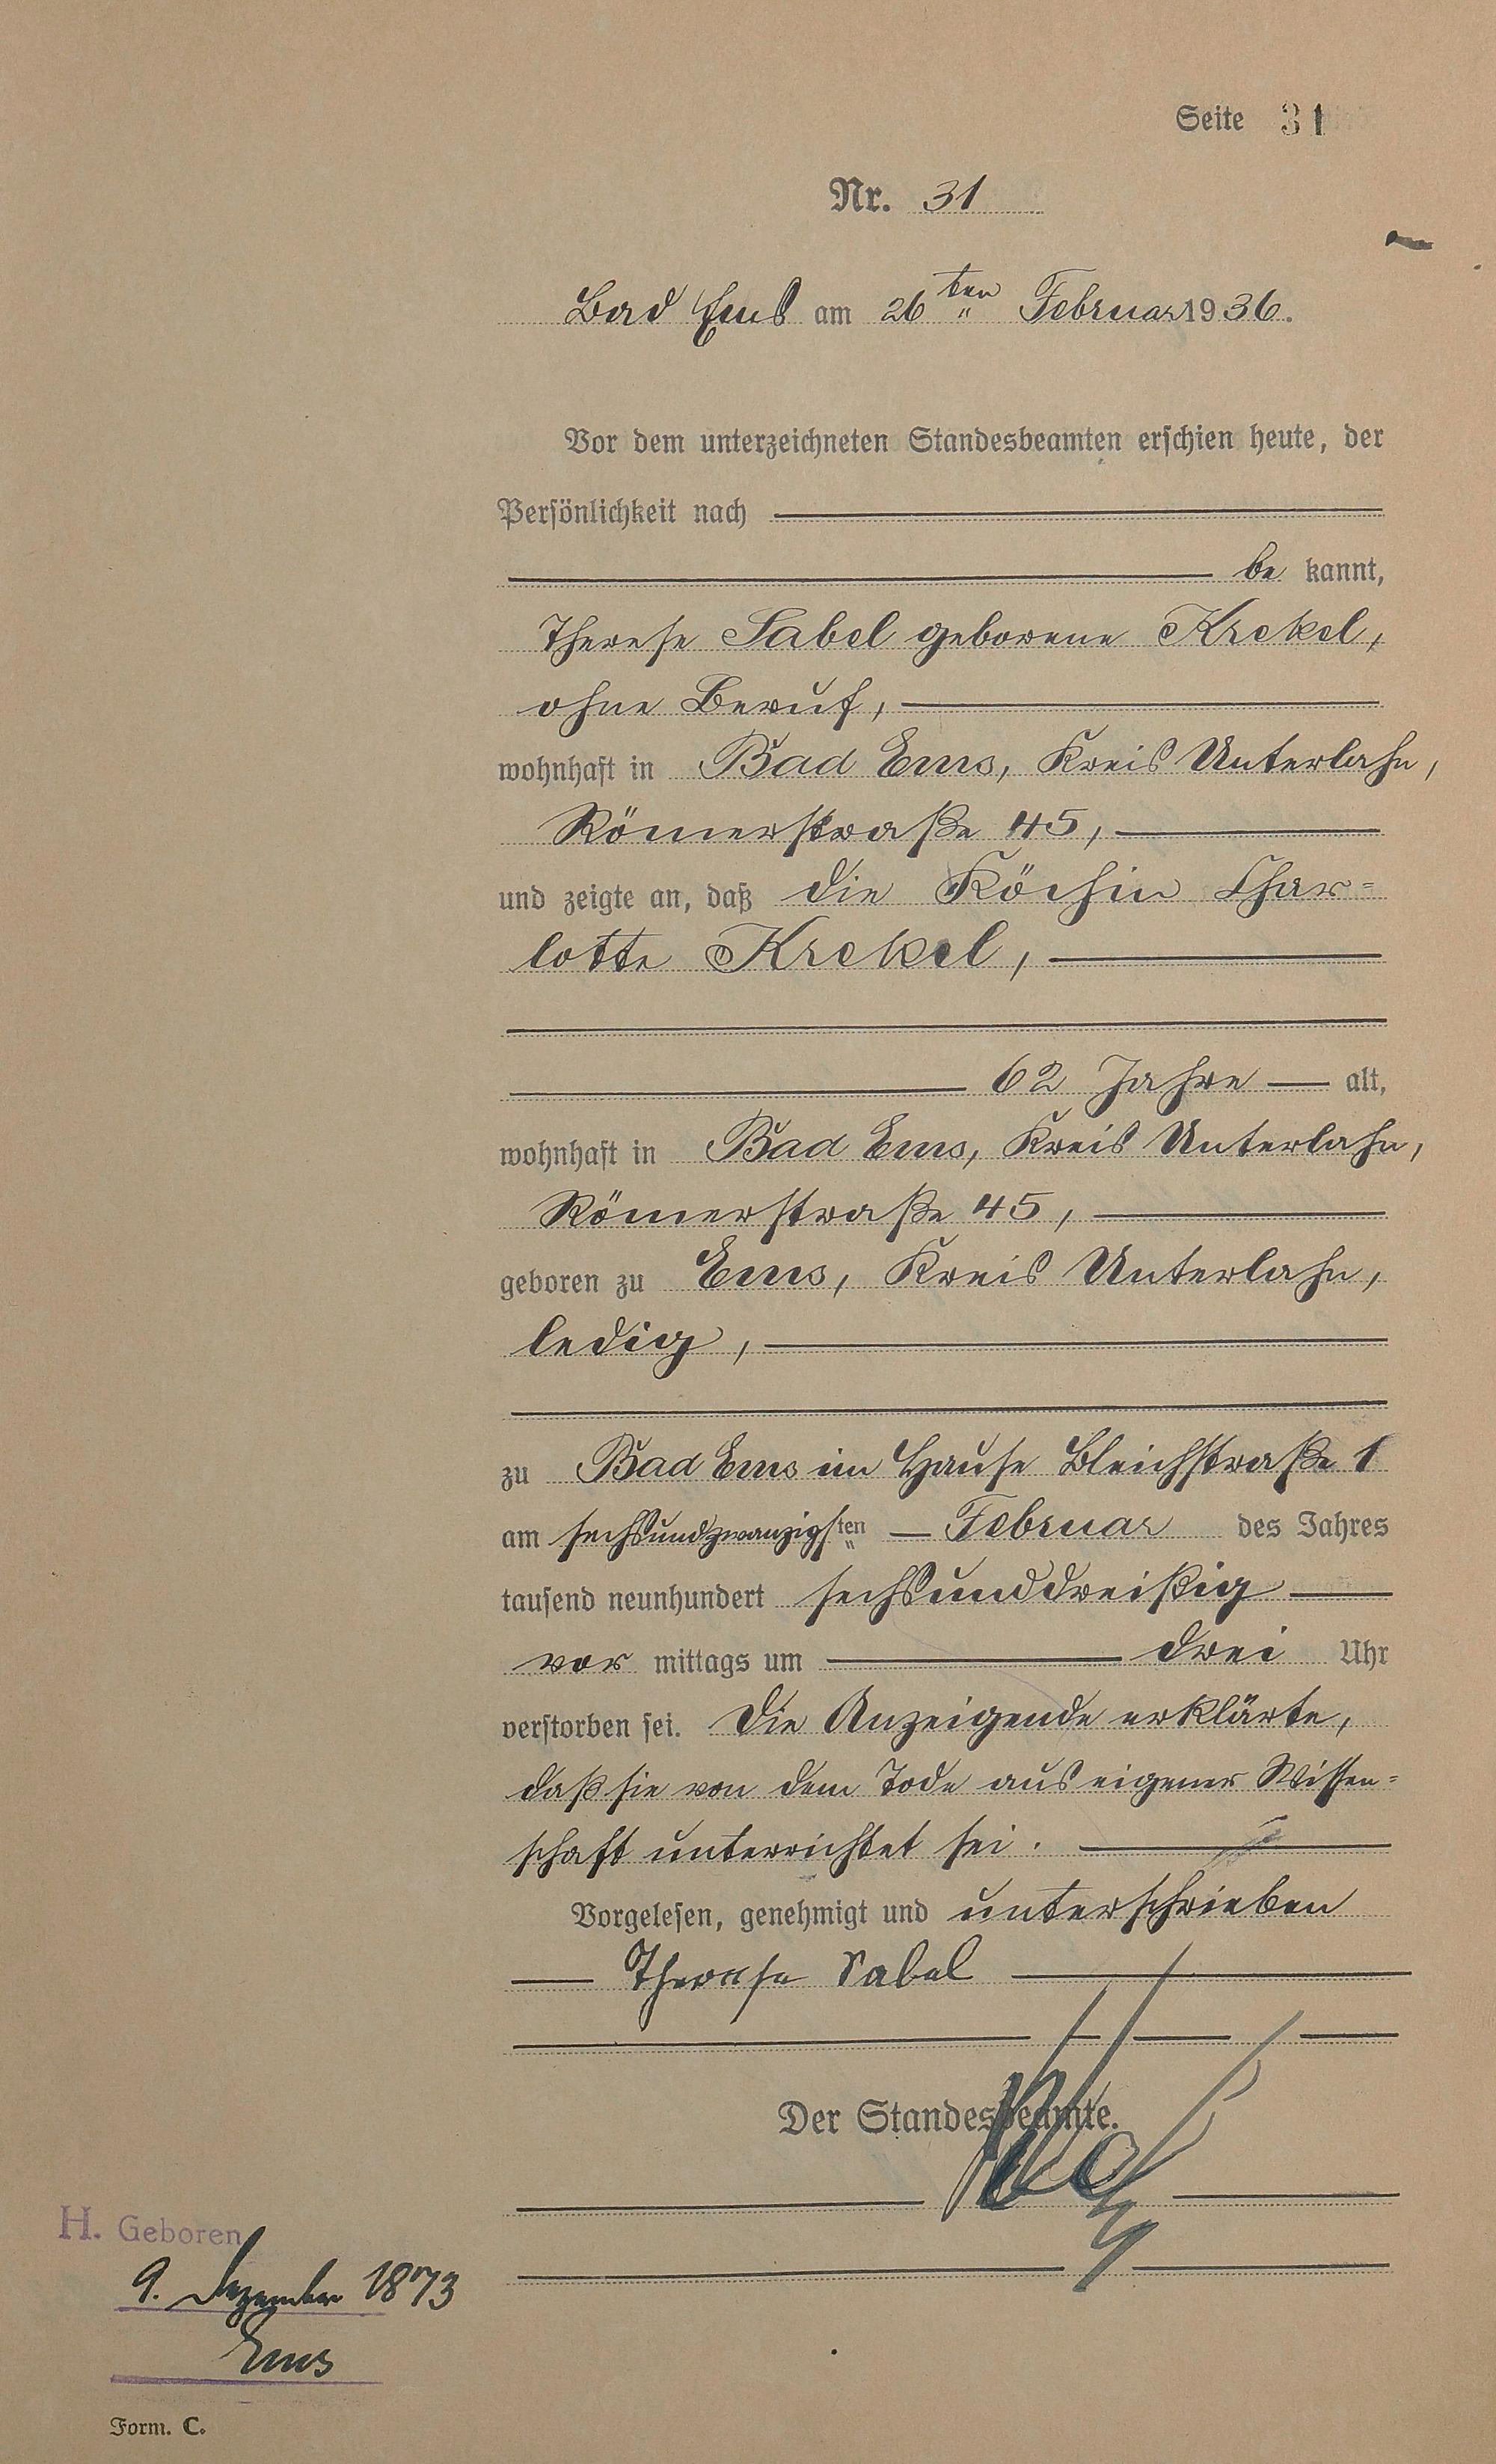 Seite 31
Nr. 31
Bad Ems am 26ten Februar 1936.
Vor dem unterzeichneten Standesbeamten erschien heute, der
Persönlichkeit nach
be kannt,
Therese Sabel geborene Krekel,
ohne Beruf,
wohnhaft in Bad Ems, Kreis Unterlahn,
Römerstraße 45,
und zeigte an, daß die Köchin Char=
lotte Krekel,
62 Jahre alt,
wohnhaft in Bad Ems, Kreis Unterlahn,
Römerstraße 45,
geboren zu Ems, Kreis Unterlahn,
ledig,
zu Bad Ems im Hause Bleichstraße 1
am sechsundzwanzigsten Februar des Jahres
tausend neunhundert sechsunddreißig
vor mittags um drei Uhr
verstorben sei. Die Anzeigende erklärte,
daß sie von dem Tode aus eigener Wissen=
schaft unterrichtet sei.
Vorgelesen, genehmigt und unterschrieben
Therese Sabel
Der Standesbeamte.
H. Geboren
9. Dezember 1873
Ems
Form. C.